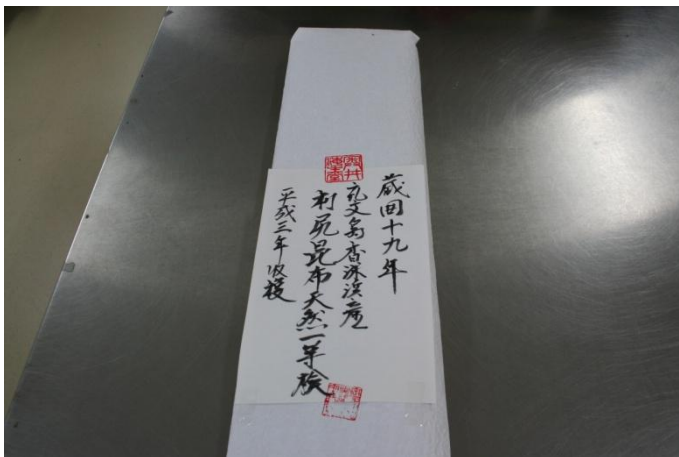 蔵囲十九年
礼文島香深浜産
利尻昆布天然一等検
平成三年収穫